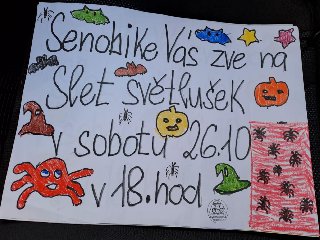 Senobike Vás zve na
Slet světlušek
v sobotu 26.10
v 18.hod